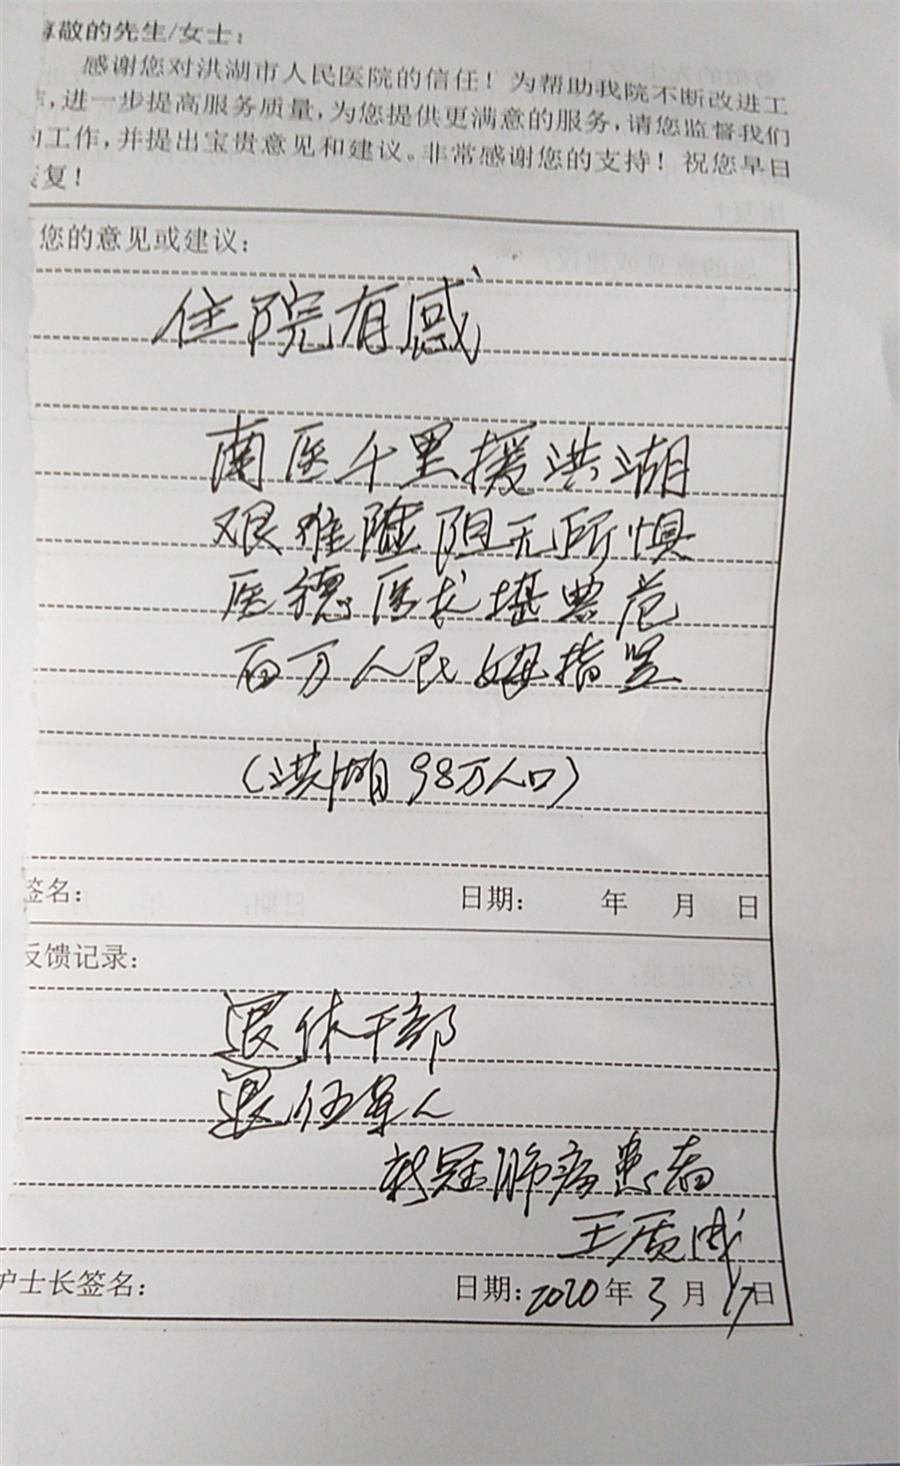 尊敬的先生/女士：
感谢您对洪湖市人民医院的信任！为帮助我院不断改进工
，进一步提高服务质量，为您提供更满意的服务，请您监督我们
工作，并提出宝贵意见和建议。非常感谢您的支持！祝您早日
复！
您的意见或建议：
住院有感
南医千里援洪湖
艰难险阻无所惧
医德医术堪典范
百万人民姆指竖
（洪湖98万人口）
签名： 日期： 年 月 日
反馈记录：
退休干部
退伍军人
新冠肺病患者
王质成
护士长签名： 日期：2020年3月17日